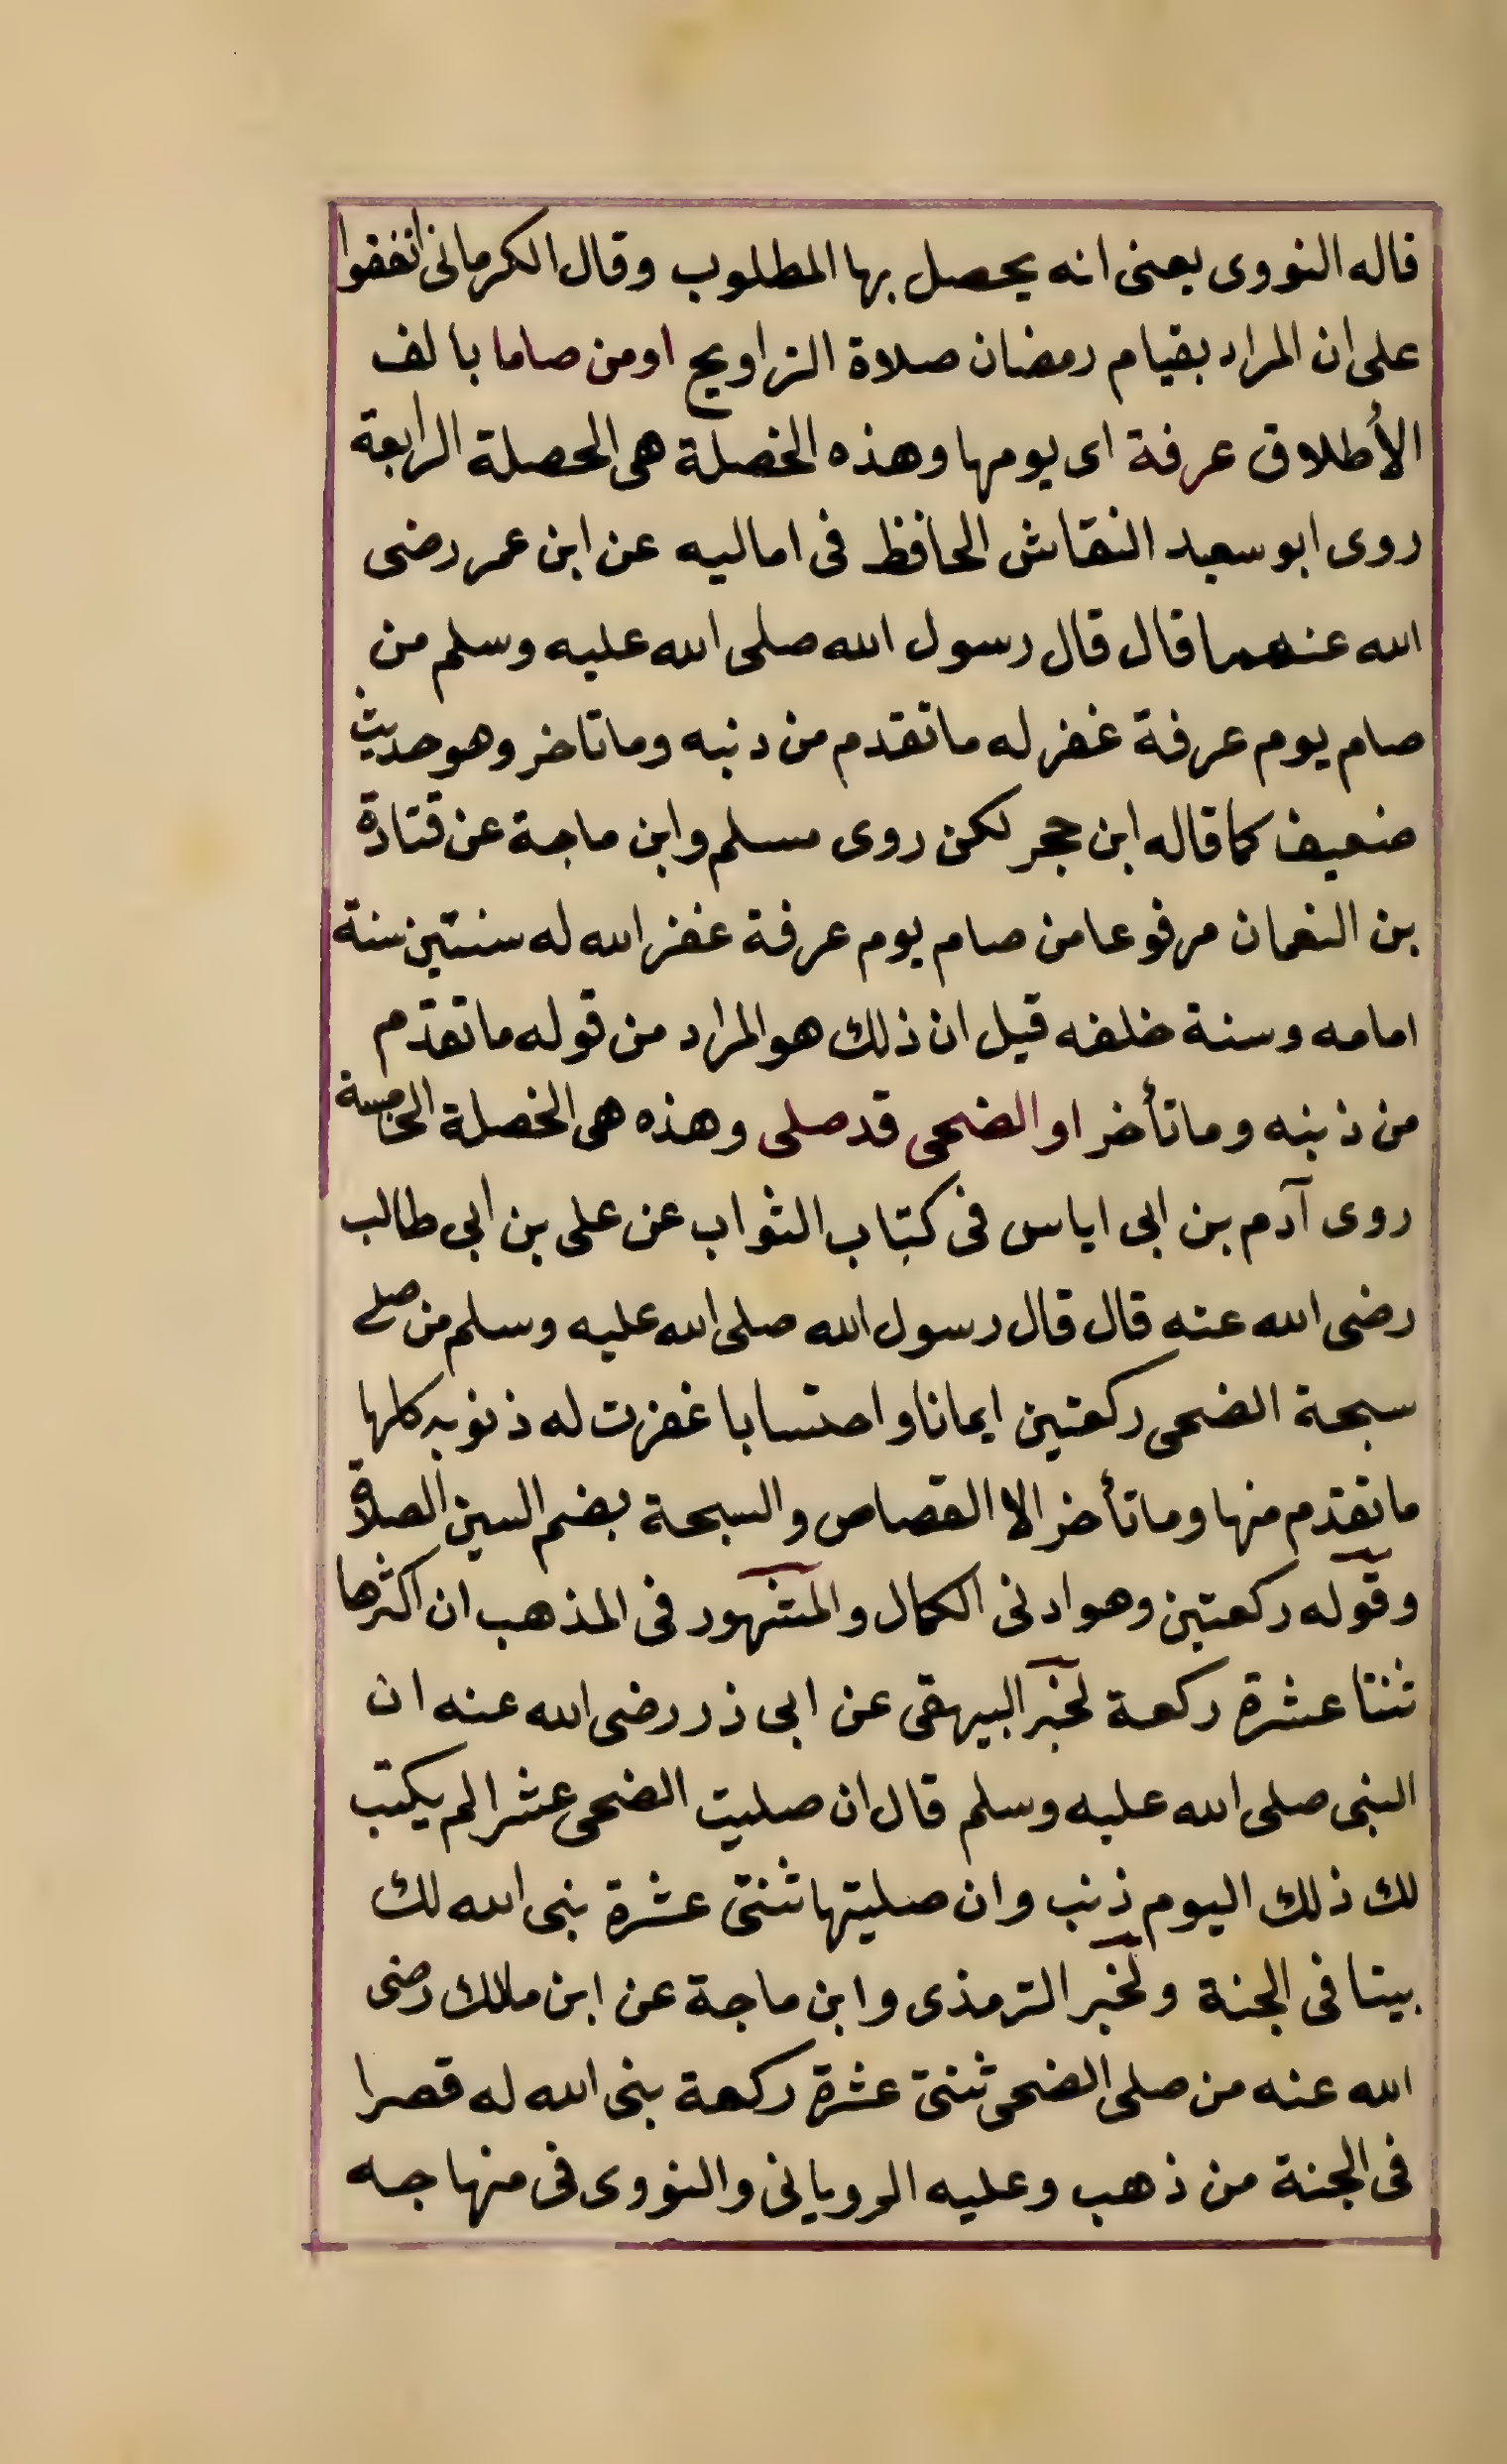 قاله النووى يعنى انه يحصل بها المطلوب وقال الكرمانى اتفقوا
على ان المراد بقيام رمضان صلاة التراويح اومن صاما بالف
الأطلاق عرفة اى يومها وهذه الخصلة هى المحصلة الرابعة
روى ابو سعيد النقاش الحافظ فى اماليه عن ابن عمر رضى
الله عنهما قال قال رسول الله صلى الله عليه وسلم من
صام يوم عرفة غفر له ما تقدم من دنبه وما تاخر وهو حديث
ضعيف كما قاله ابن حجر لكن روى مسلم وابن ماجة عن قتادة
بن النعمان مرفوعا من صام يوم عرفة غفر الله له سنتين سنة
امامه وسنة خلفه قيل ان ذلك هو المراد من قوله ما تقدم
من ذنبه وما تأخر او الضحى قد صلى وهذه هى الخصلة الخامسة
روى آدم بن ابى اياس فى كتاب الثواب عن على بن ابى طالب
رضى الله عنه قال قال رسول الله صلى الله عليه وسلم من صلى
سبحة الضحى ركعتين ايمانا واحتسابا غفرت له ذنوبه كلها
ما تقدم منها وما تأخر الا القصاص والسبحة بضم السين الصلاة
وقوله ركعتين وهو ادنى الكمال والمشهور فى المذهب ان اكثرها
ثنتا عشرة ركعة لخبر البيهقى عن ابى ذر رضى الله عنه ان
النبى صلى الله عليه وسلم قال ان صليت الضحى عشرا لم يكتب
لك ذلك اليوم ذنب وان صليتها ثنتى عشرة بنى الله لك
بيتا فى الجنة ولخبر الترمذى وابن ماجة عن ابن مالك رضى
الله عنه من صلى الضحى ثنتى عشرة ركعة بنى الله له قصرا
فى الجنة من ذهب وعليه الرويانى والنووى فى منهاجه